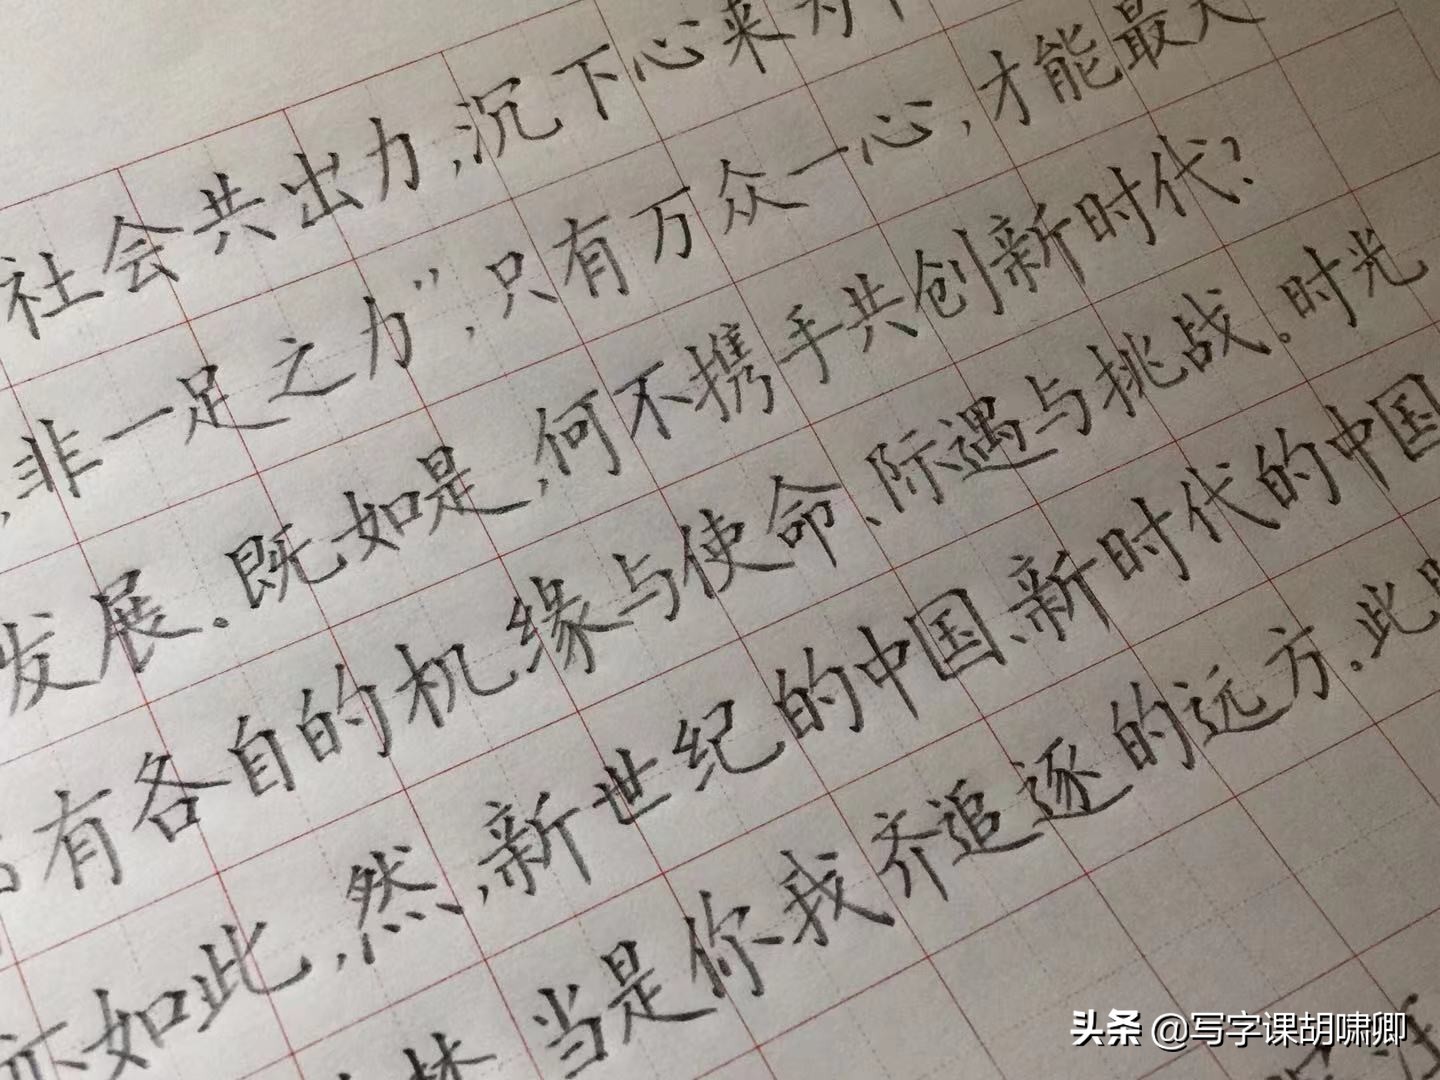 社会共出力,沉下心来为
,非一足之力",只有万众一心,才能最大
发展.既如是,何不携手共创新时代?
有各自的机缘与使命、际遇与挑战。时光
亦如此,然,新世纪的中国、新时代的中国
梦,当是你我齐追逐的远方.此
头条 @写字课胡啸卿